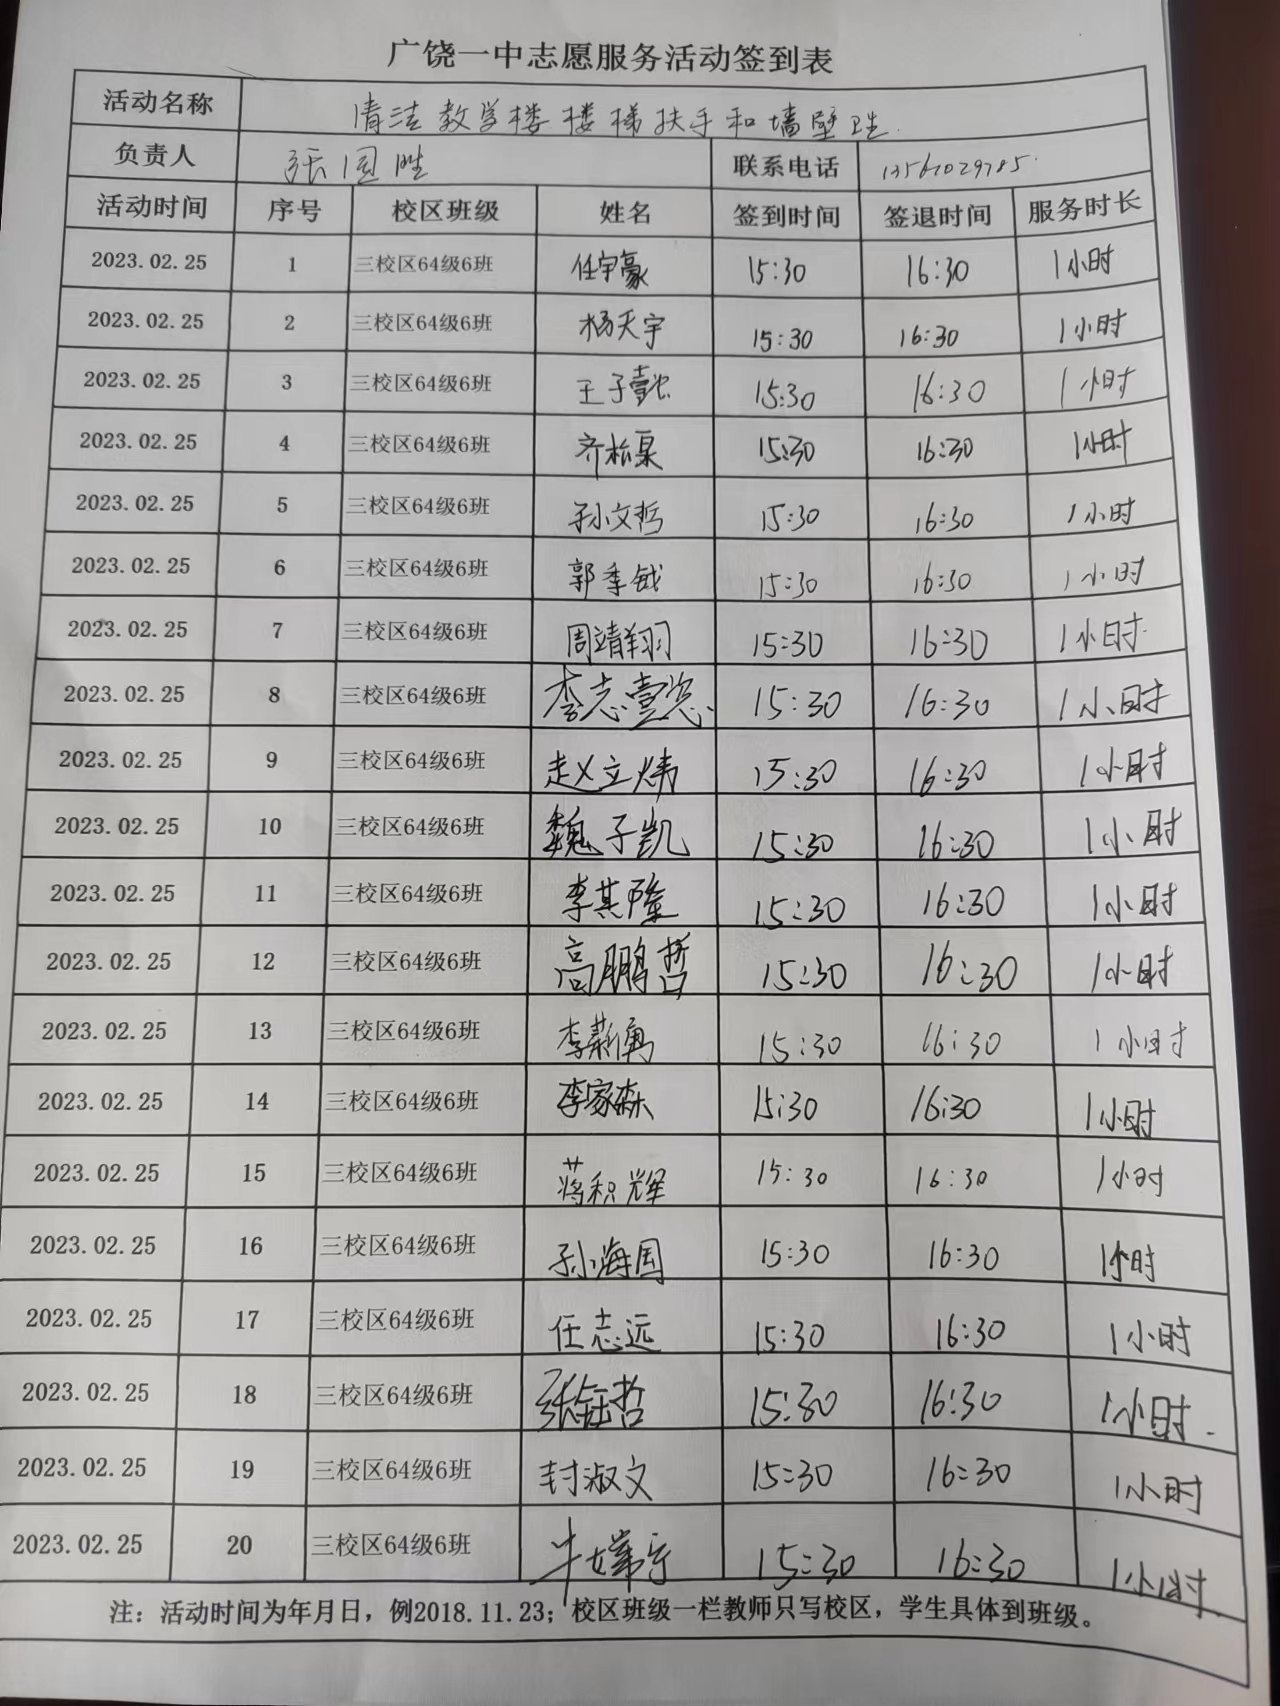 广饶一中志愿服务活动签到表
活动名称 清洁教学楼楼梯扶手和墙壁卫生.
负责人 张国胜 联系电话 13561029785.
活动时间 序号 校区班级 姓名 签到时间 签退时间 服务时长
2023.02.25 1 三校区64级6班 任宇豪 15:30 16:30 1小时
2023.02.25 2 三校区64级6班 杨天宇 15:30 16:30 1小时
2023.02.25 3 三校区64级6班 王子懿 15:30 16:30 1小时
2023.02.25 4 三校区64级6班 齐松 15:30 16:30 1小时
2023.02.25 5 三校区64级6班 孙文哲 15:30 16:30 1小时
2023.02.25 6 三校区64级6班 郭季钺 15:30 16:30 1小时
2023.02.25 7 三校区64级6班 周靖翔 15:30 16:30 1小时
2023.02.25 8 三校区64级6班 李志懿 15:30 16:30 1小时
2023.02.25 9 三校区64级6班 赵立炜 15:30 16:30 1小时
2023.02.25 10 三校区64级6班 魏子凯 15:30 16:30 1小时
2023.02.25 11 三校区64级6班 李其隆 15:30 16:30 1小时
2023.02.25 12 三校区64级6班 高鹏哲 15:30 16:30 1小时
2023.02.25 13 三校区64级6班 李 15:30 16:30 1小时
2023.02.25 14 三校区64级6班 李家森 15:30 16:30 1小时
2023.02.25 15 三校区64级6班 蒋积辉 15:30 16:30 1小时
2023.02.25 16 三校区64级6班 孙海国 15:30 16:30 1小时
2023.02.25 17 三校区64级6班 任志远 15:30 16:30 1小时
2023.02.25 18 三校区64级6班 张钰哲 15:30 16:30 1小时.
2023.02.25 19 三校区64级6班 封淑文 15:30 16:30 1小时
2023.02.25 20 三校区64级6班 牛 15:30 16:30 1小时
注：活动时间为年月日，例2018.11.23；校区班级一栏教师只写校区，学生具体到班级。